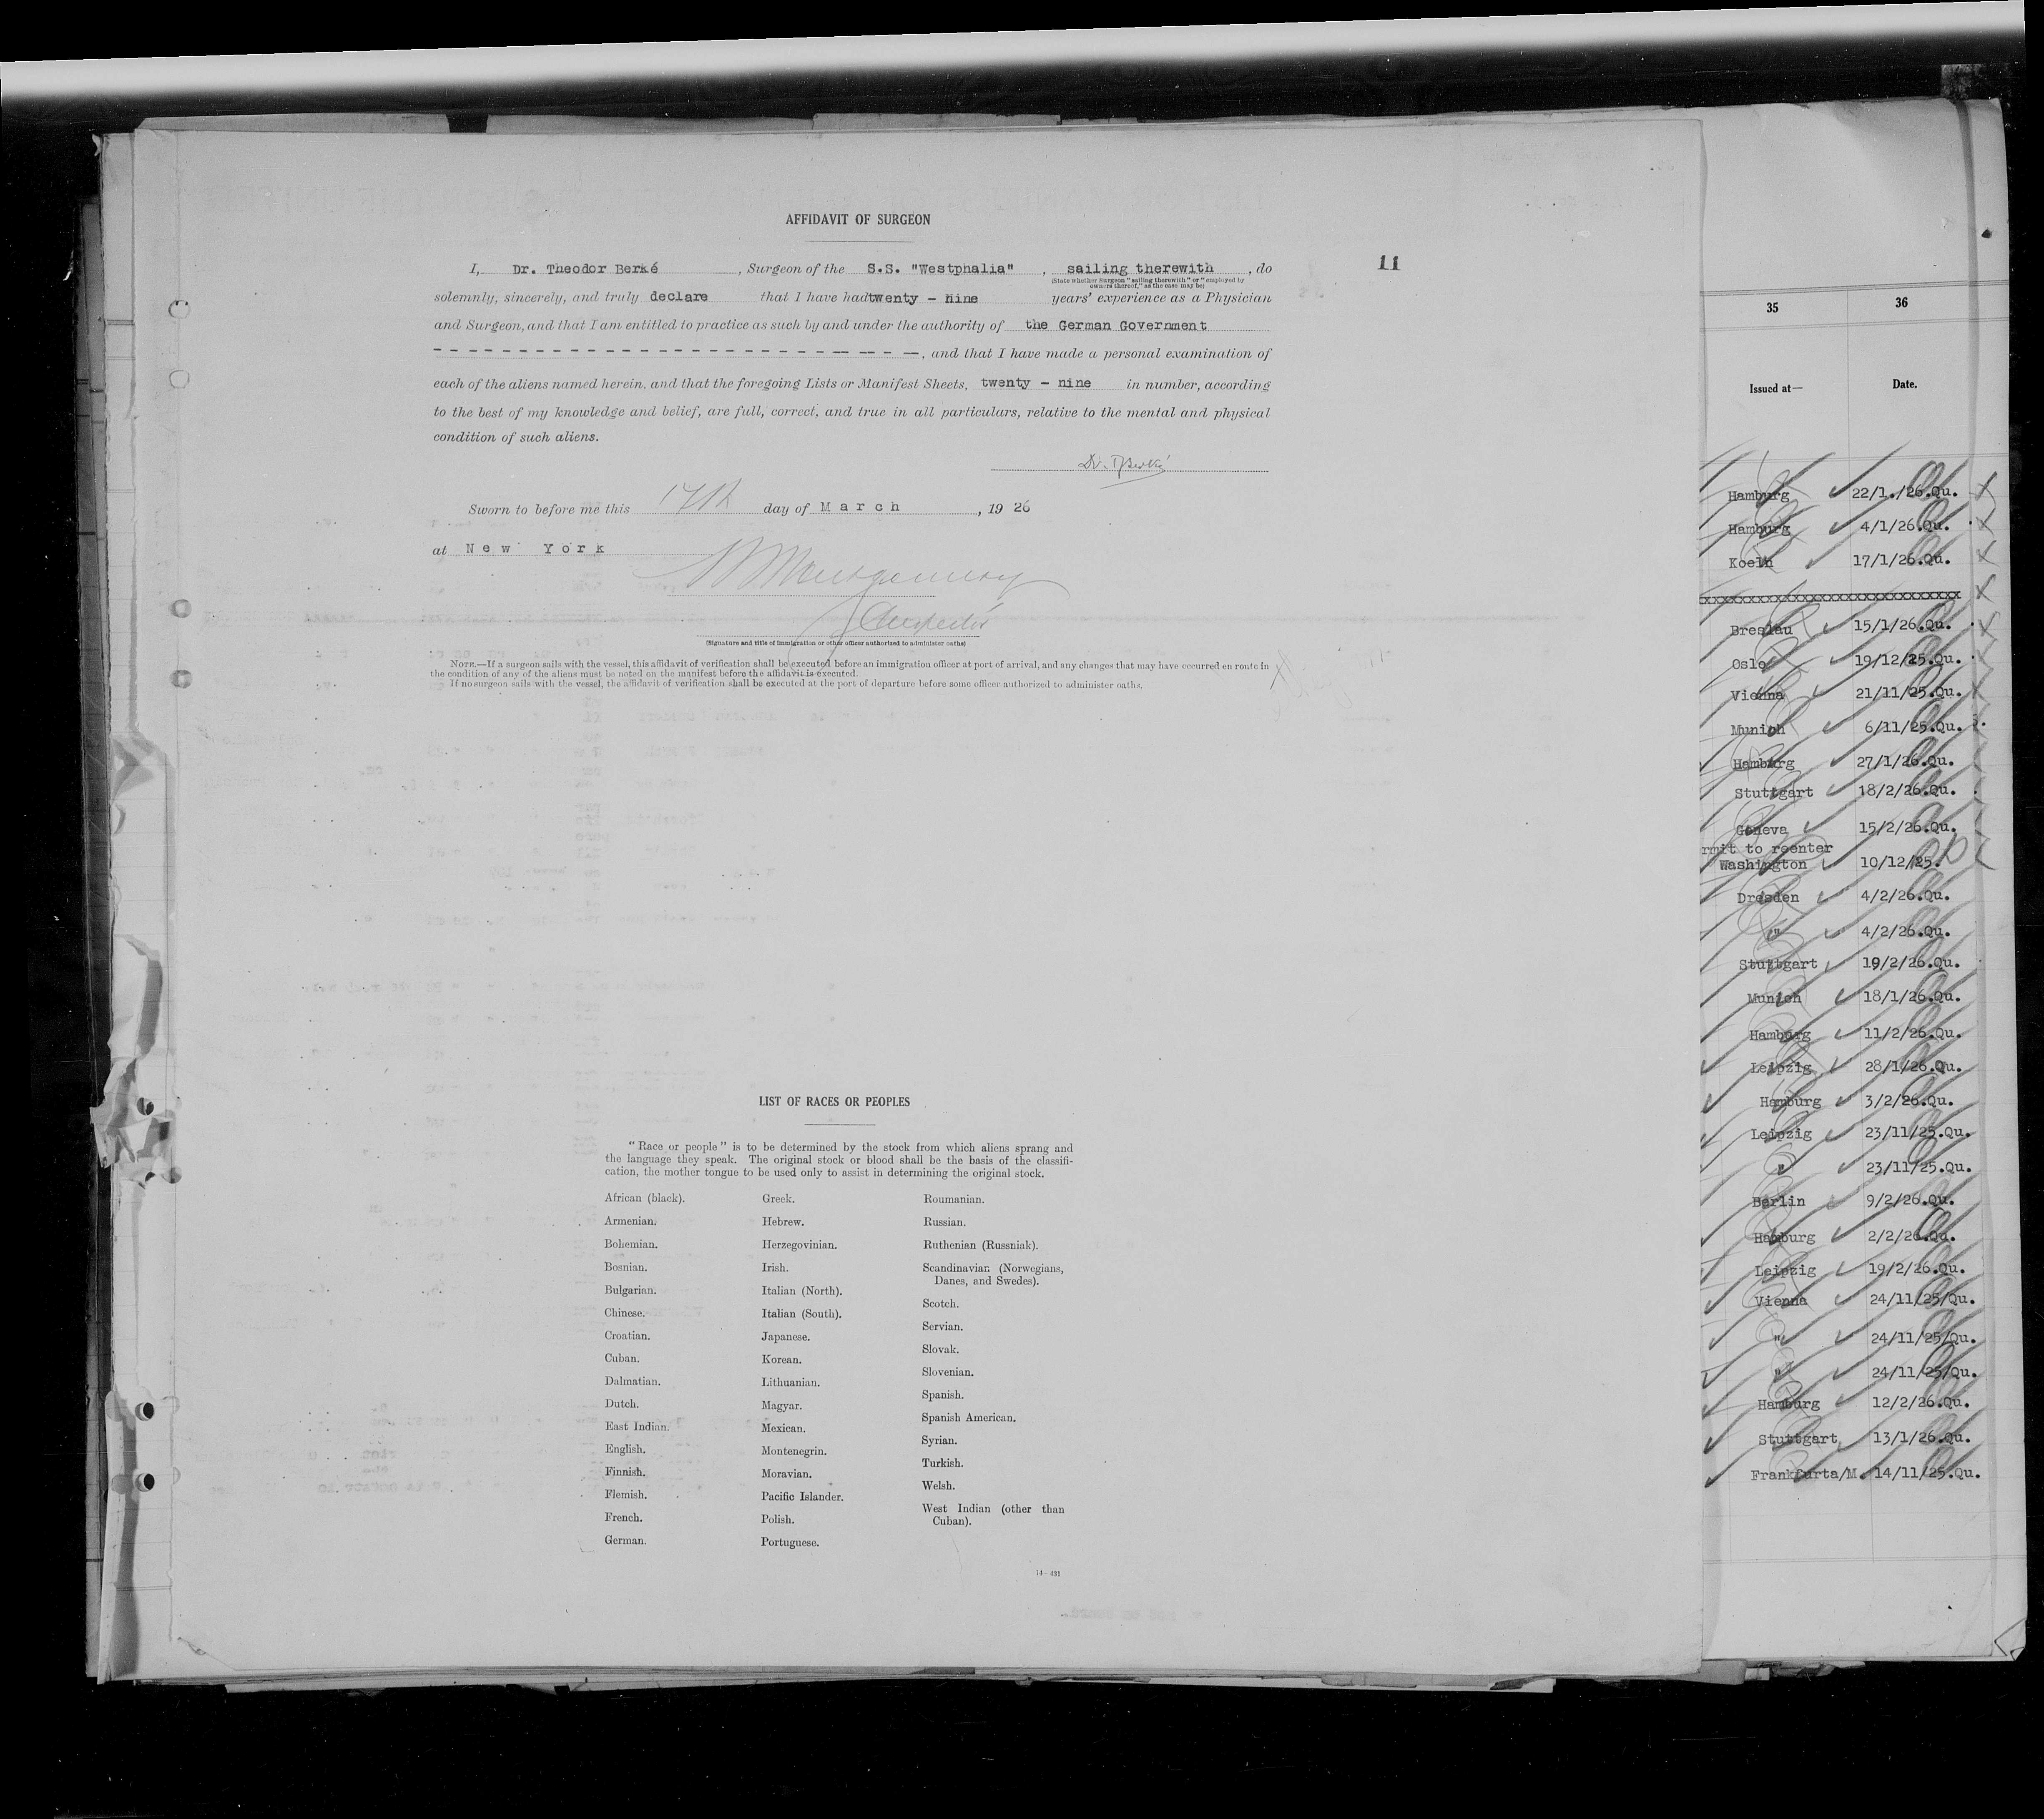 AFFIDAVIT OF SURGEON
11
I, Dr. Theodor Berké , Surgeon of the S.S. "Westphalia" , sailing therewith , do
(State whether Surgeon "sailing therewith" or "employed by
owners thereof," as the case may be)
solemnly, sincerely, and truly declare that I have had twenty - nine years' experience as a Physician
and Surgeon, and that I am entitled to practice as such by and under the authority of the German Government
- - - - - - - - - - - - - - - - - - - - - - - - - - - - -, and that I have made a personal examination of
each of the aliens named herein, and that the foregoing Lists or Manifest Sheets, twenty - nine in number, according
to the best of my knowledge and belief, are full, correct, and true in all particulars, relative to the mental and physical
condition of such aliens.
Dr. T Berké
Sworn to before me this 17th day of March , 19 26
at New York
Montgomery
Inspector
(Signature and title of immigration or other officer authorized to administer oaths)
NOTE.—If a surgeon sails with the vessel, this affidavit of verification shall be executed before an immigration officer at port of arrival, and any changes that may have occurred en route in
the condition of any of the aliens must be noted on the manifest before the affidavit is executed.
If no surgeon sails with the vessel, the affidavit of verification shall be executed at the port of departure before some officer authorized to administer oaths.
LIST OF RACES OR PEOPLES
"Race or people" is to be determined by the stock from which aliens sprang and
the language they speak. The original stock or blood shall be the basis of the classifi-
cation, the mother tongue to be used only to assist in determining the original stock.
African (black).
Armenian.
Bohemian.
Bosnian.
Bulgarian.
Chinese.
Croatian.
Cuban.
Dalmatian.
Dutch.
East Indian.
English.
Finnish.
Flemish.
French.
German.
Greek.
Hebrew.
Herzegovinian.
Irish.
Italian (North).
Italian (South).
Japanese.
Korean.
Lithuanian.
Magyar.
Mexican.
Montenegrin.
Moravian.
Pacific Islander.
Polish.
Portuguese.
Roumanian.
Russian.
Ruthenian (Russniak).
Scandinavian (Norwegians,
Danes, and Swedes).
Scotch.
Servian.
Slovak.
Slovenian.
Spanish.
Spanish American.
Syrian.
Turkish.
Welsh.
West Indian (other than
Cuban).
14-431
35 36
Issued at— Date.
Hamburg 22/1./26.Qu.
Hamburg 4/1/26.Qu.
Koeln 17/1/26.Qu.
xxxxxxxxxxxxxxxxxxxxxxxxxxxxxxxx
Breslau 15/1/26.Qu.
Oslo 19/12/25.Qu.
Vienna 21/11/25.Qu.
Munich 6/11/25.Qu.
Hamburg 27/1/26.Qu.
Stuttgart 18/2/26.Qu.
Geneva 15/2/26.Qu.
rmit to reenter
Washington 10/12/25.
Dresden 4/2/26.Qu.
" 4/2/26.Qu.
Stuttgart 19/2/26.Qu.
Munich 18/1/26.Qu.
Hamburg 11/2/26.Qu.
Leipzig 28/1/26.Qu.
Hamburg 3/2/26.Qu.
Leipzig 23/11/25.Qu.
" 23/11/25.Qu.
Berlin 9/2/26.Qu.
Hamburg 2/2/26.Qu.
Leipzig 19/2/26.Qu.
Vienna 24/11/25/Qu.
" 24/11/25/Qu.
" 24/11/25/Qu.
Hamburg 12/2/26.Qu.
Stuttgart 13/1/26.Qu.
Frankfurta/M. 14/11/25.Qu.